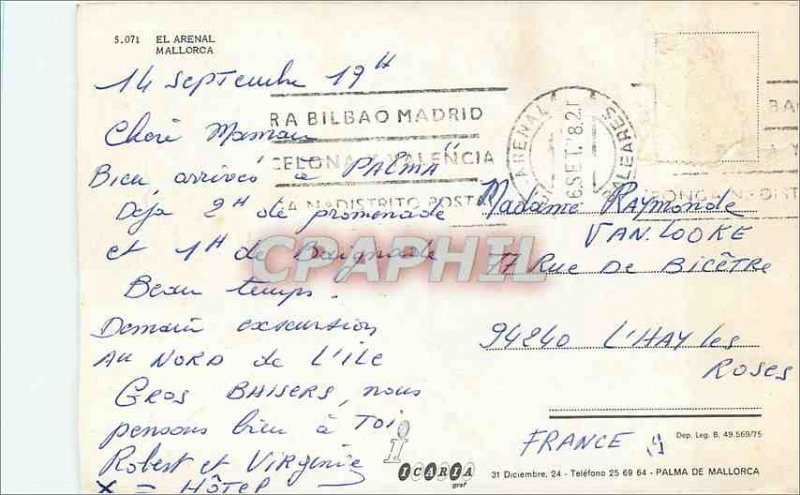 5.071 EL ARENAL
MALLORCA
14 Septembre 19H
RA BILBAO MADRID
CELONA VALENCIA
NA DISTRITO POSTAL
ARENAL
BALEARES
SET. 82
Cheré Maman
Bien arrivés à "PALMA"
Déjà 2H de promenade
et 1H de Baignade
Beau temps.
Demain excursion
AU NORD de L'ILE
GROS BAISERS, nous
pensons bien à Toi
Robert et Virginie
X = HÔTEL
Madame RAYMONDE
VAN.LOOKE
77 RUE DE BICÊTRE
94240 L'HAY les
ROSES
FRANCE
CPAPHIL
i
ICARIA
graf
Dep. Leg. B. 49.569/75
31 Diciembre, 24 - Teléfono 25 69 64 - PALMA DE MALLORCA